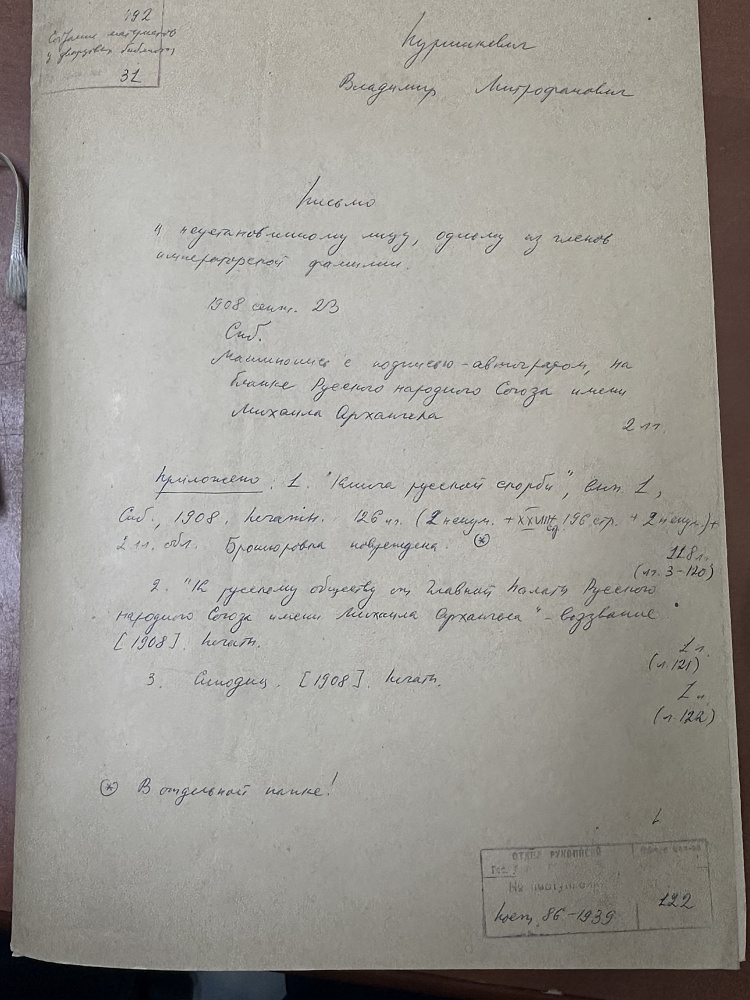 492
Собрание материалов
у дворцовых библиотек
31
Пуришкевич
Владимир Митрофанович
Письмо
к неустановленному лицу, одному из членов
императорской фамилии.
1908 сент. 23
Спб.
Машинопись с подписью-автографом, на
бланке Русского народного Союза имени
Михаила Архангела
2 лл.
Приложено. 1. "Книга русской скорби", вып. 1,
Спб., 1908. Печатн. 126 лл. (2 ненум. + XXVIII + 196 стр. + 2 ненум.) +
2 лл. обл. Брошюровка повреждена. *
118 л.
(лл. 3-120)
2. "К русскому обществу от Главной Палаты Русского
народного Союза имени Михаила Архангела" - воззвание
[1908]. Печатн.
1 л.
(л. 121)
3. Синодик. [1908]. Печатн.
1 л.
(л. 122)
* В отдельной папке!
ОТДЕЛ РУКОПИСЕЙ
Гос.
№
пост. 86-1939
122